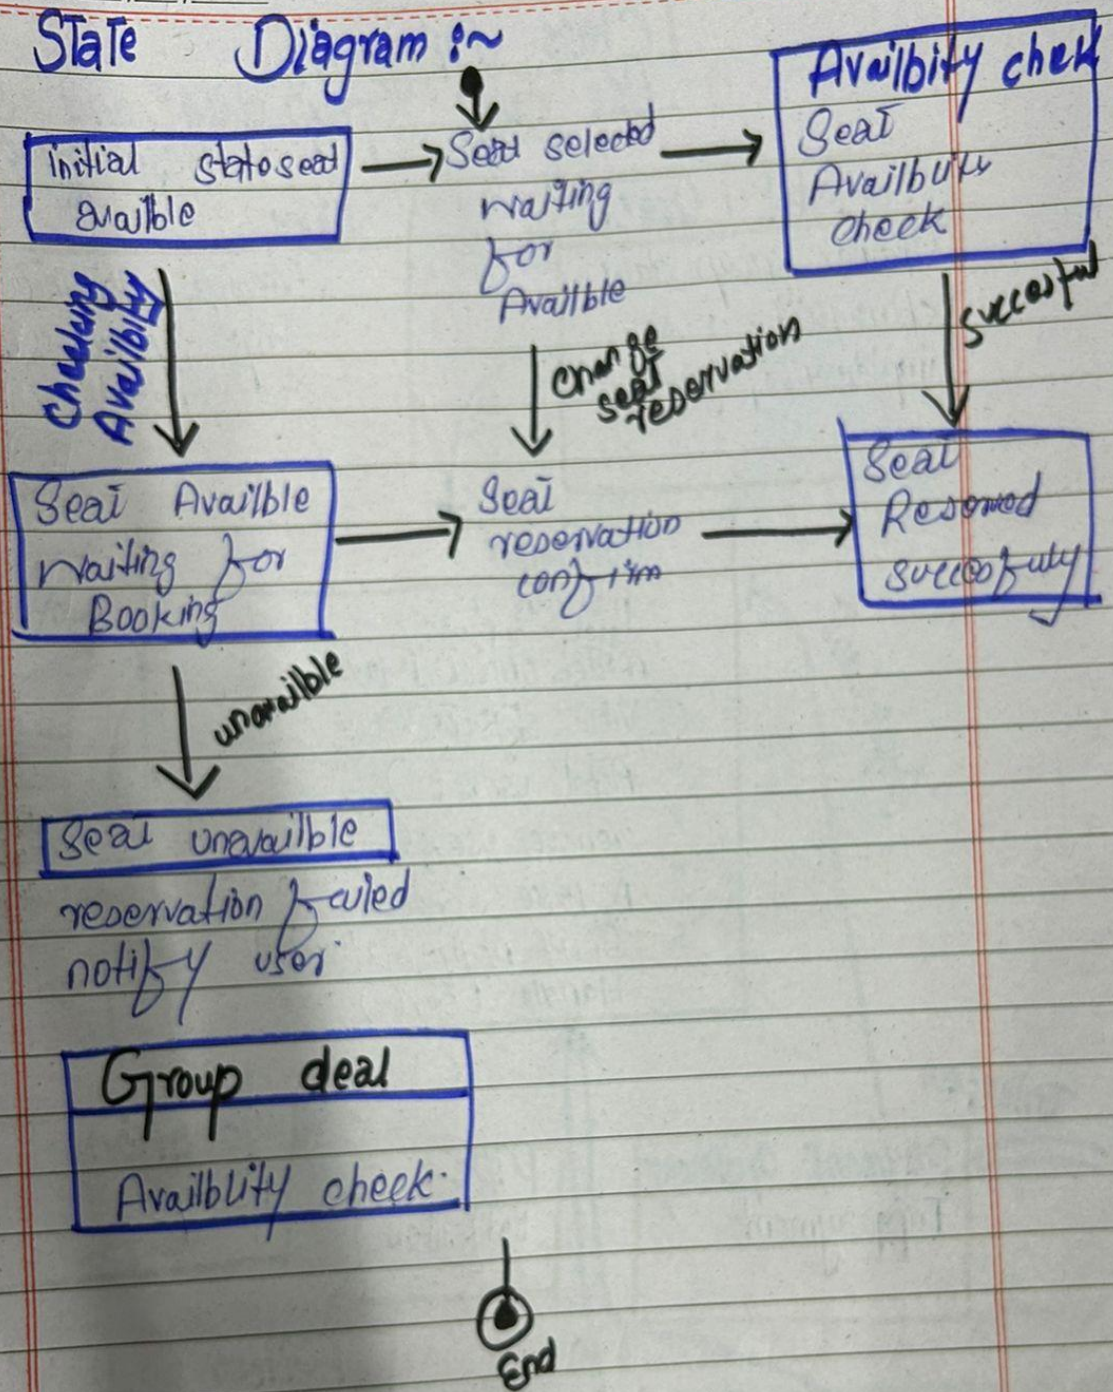 State Diagram :~
initial state seat
availble
Seat selected
waiting
for
Availble
Availbity chek
Seat
Availbility
check
Checking
Availbity
change
seat
reservation
succesful
Seat Availble
Waiting for
Booking
Seat
reservation
confirm
Seat
Reserved
succesfuly
unavailble
Seat unavailble
reservation failed
notify user
Group deal
Availblity check.
End